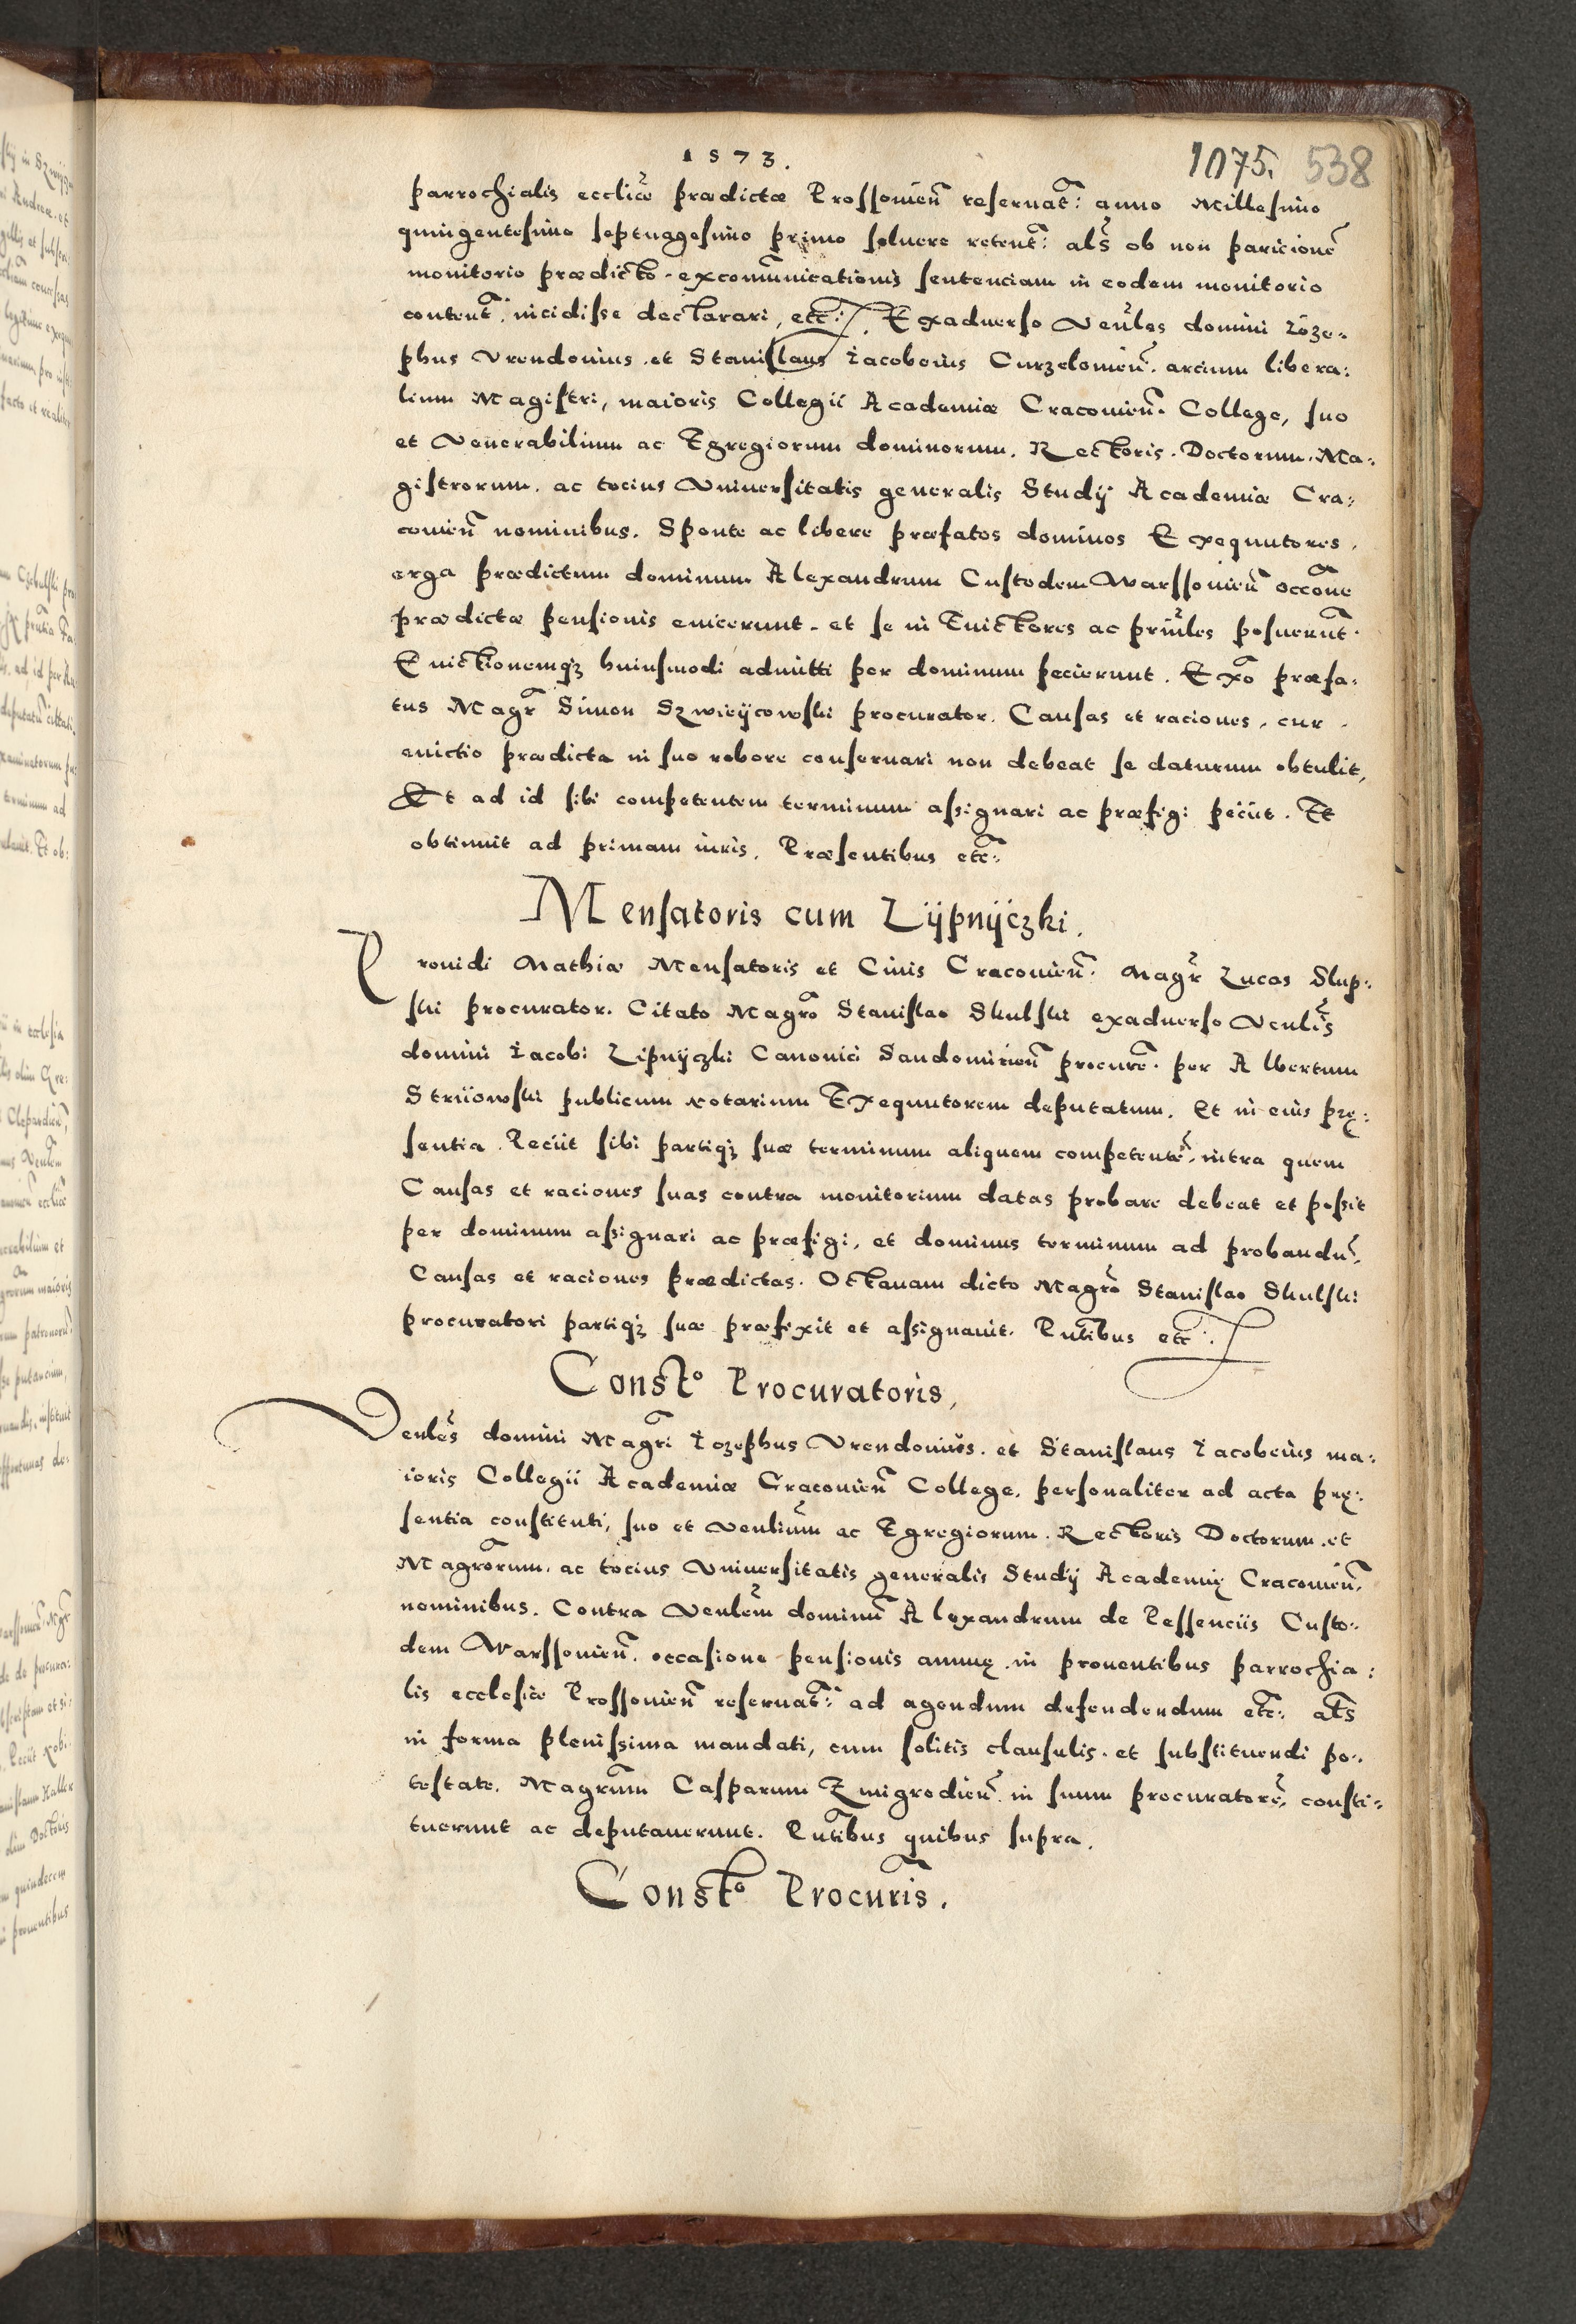 1573.
1075. 538
parrochialis eccliæ prædictæ Prossouien̄ reseruat: anno Millesimo
quingentesimo septuagesimo primo soluere retent: als̄ ob non paricionē
monitorio prædicto excom̄unicationis sentenciam in eodem monitorio
content: incidisse declarari, etc: Exaduerso Venles domini Ioze-
phus Vrendouius et Stanislaus Iacobeius Curzelouien̄. arcium libera:
lium Magistri, maioris Collegii Academiæ Cracouien̄. Collegę, suo
et Venerabilium ac Egregiorum dominorum. Rectoris. Doctorum. Ma:
gistrorum. ac tocius Vniuersitatis generalis Studij Academiæ Cra:
couien̄ nominibus. Sponte ac libere præfatos dominos Exequutores.
erga prædictum dominum Alexandrum Custodem Warssouien̄ occōne
prædictæ pensionis euicerunt. et se in Euictores ac prīnles posuerunt.
Euictionemqȝ huiusmodi admitti per dominum pecierunt. Exo præfa:
tus Magr̄ Simon Szwieijcowski procurator. Causas et raciones, cur
euictio prædicta in suo robore conseruari non debeat se daturum obtulit,
Et ad id sibi competentem terminum assignari ac præfigi peciit. Et
obtinuit ad primam iuris. Præsentibus etc:
Mensatoris cum Lijpnijczki.
Prouidi Mathiæ Mensatoris et Ciuis Cracouien̄. Magr̄ Lucas Slup:
ski procurator. Citato Magrō Stanislao Skulski exaduerso Venlis̄
domini Iacobi Lipnijczki Canonici Sandomirien̄ procure. per Albertum
Striiowski publicum notarium Exequutorem deputatum. Et in eius prę:
sentia. Peciit sibi partiqȝ suæ terminum aliquem competentē, intra quem
Causas et raciones suas contra monitorium datas probare debeat et possit
per dominum assignari ac præfigi, et dominus terminum ad probandū
Causas et raciones prædictas. Octauam dicto Magrō Stanislao Skulski
procuratori partiqȝ suæ præfixit et assignauit. Pntibus etc:
Const.º Procuratoris,
Venles̄ domini Magrī Iozephus Vrendouius. et Stanislaus Iacobeius ma:
ioris Collegii Academiæ Cracouien̄ Collegę. personaliter ad acta prę:
sentia constituti, suo et venlium̄ ac Egregiorum. Rectoris Doctorum et
Magrōrum. ac tocius Vniuersitatis generalis Studij Academię Cracouien̄.
nominibus. Contra Venlem̄ dominū Alexandrum de Pessenciis Custo:
dem Warssouien̄. occasione pensionis annuę in prouentibus parrochia:
lis ecclesiæ Prossouien̄ reseruat: ad agendum defendendum etc: als̄
in forma plenissima mandati, cum solitis clausulis. et substituendi po:
testate. Magrum̄ Casparum Zmigrodien̄. in suum procuratorē, consti:
tuerunt ac deputauerunt. Pntibus quibus supra.
Const.º Procuris.